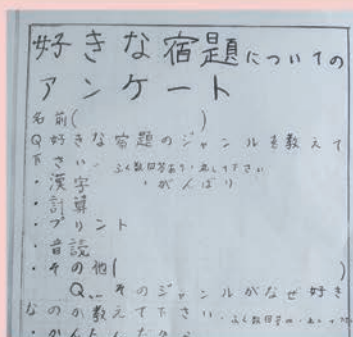 好きな宿題についての
アンケート
名前(　　　)
Q好きな宿題のジャンルを教えて
下さい。ふく数回答あり
・漢字　・がんばり
・計算
・プリント
・音読
・その他(　　　)
Q、そのジャンルがなぜ好き
なのか教えて下さい。ふく数回答
・かんたんだから